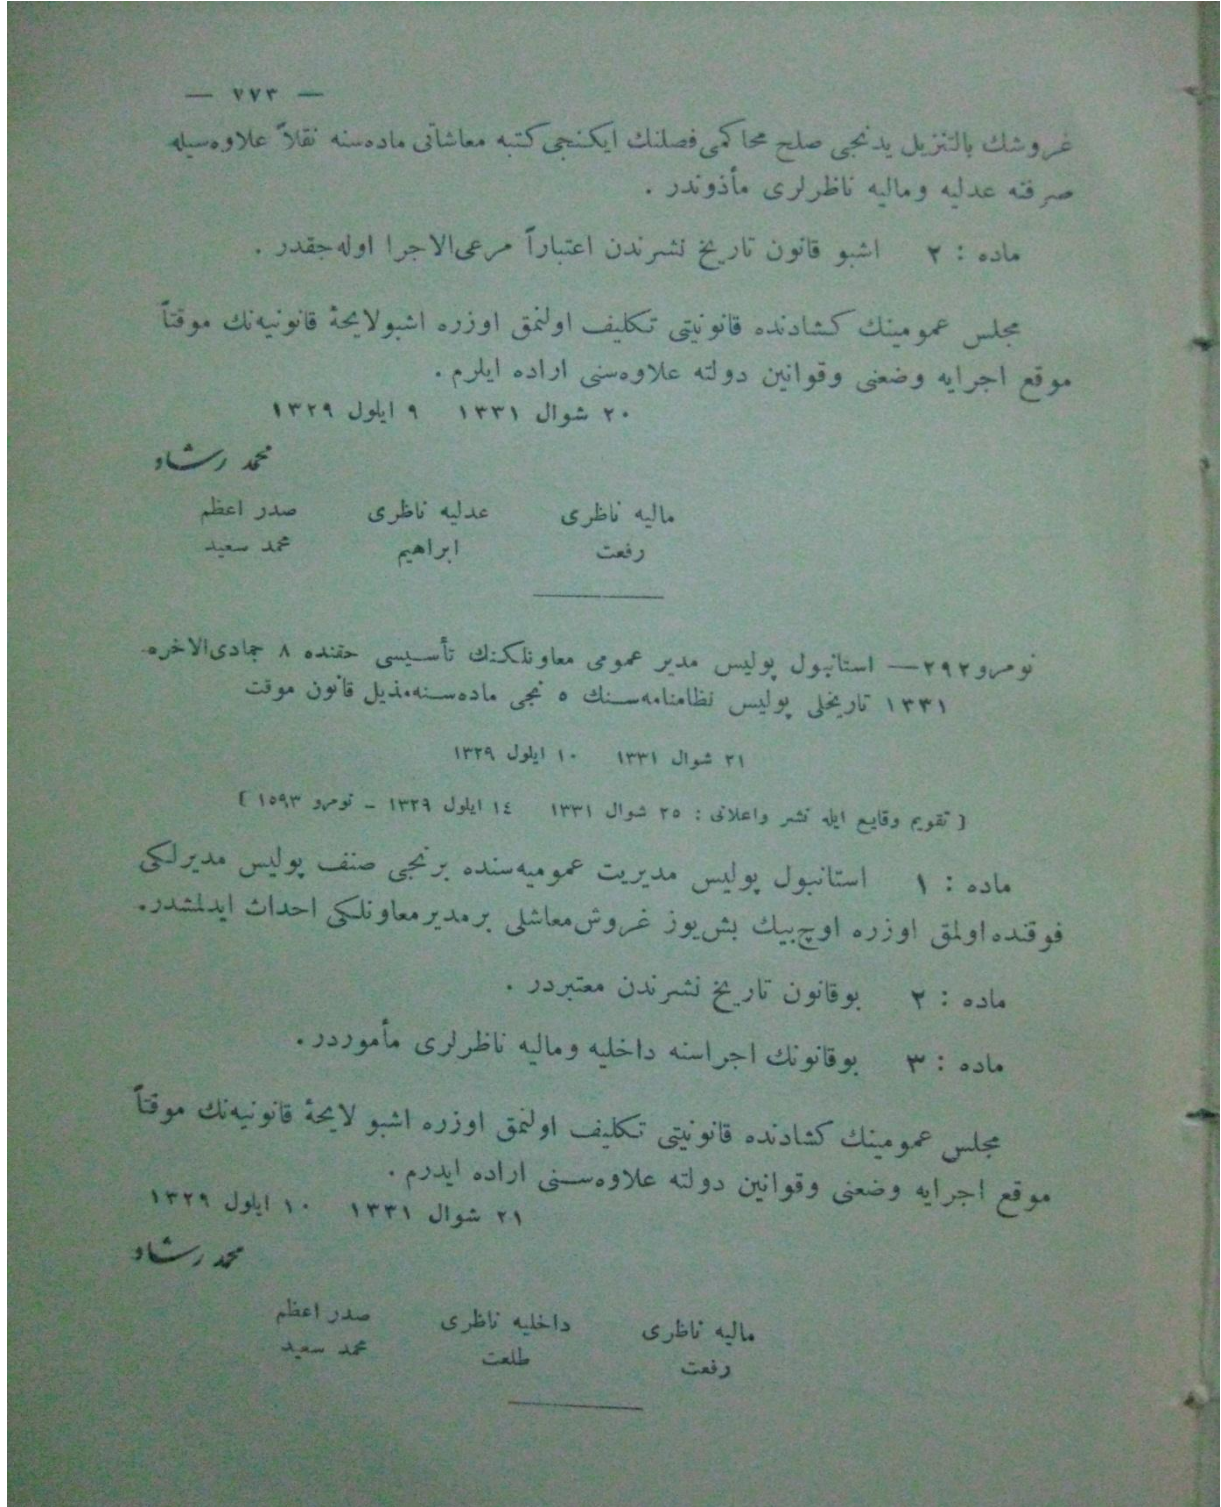 — ٧٧٣ —
غروشك بالتنزيل يدنجى صلح محاكمى فصلنك ايكنجى كتبه معاشاتى ماده‌سنه نقلاً علاوه‌سيله
صرفنه عدليه وماليه ناظرلرى مأذوندر .
ماده : ٢ اشبو قانون تاريخ نشرندن اعتباراً مرعى‌الاجرا اوله‌جقدر .
مجلس عمومينك كشادنده قانونيتى تكليف اولنمق اوزره اشبولايحۀ قانونيه‌نك موقتاً
موقع اجرايه وضعنى وقوانين دولته علاوه‌سنى اراده ايلرم .
٢٠ شوال ١٣٣١ ٩ ايلول ١٣٢٩
محمد رشاد
ماليه ناظرى عدليه ناظرى صدر اعظم
رفعت ابراهيم محمد سعيد
نومرو ٢٩٢ — استانبول پوليس مدير عمومى معاونلكنك تأسيسى حقنده ٨ جمادى‌الاخره
١٣٣١ تاريخلى پوليس نظامنامه‌سنك ٥ نجى ماده‌سنه‌مذيل قانون موقت
٢١ شوال ١٣٣١ ١٠ ايلول ١٣٢٩
[ تقويم وقايع ايله نشر واعلانى : ٢٥ شوال ١٣٣١ ١٤ ايلول ١٣٢٩ - نومرو ١٥٩٣ ]
ماده : ١ استانبول پوليس مديريت عموميه‌سنده برنجى صنف پوليس مديرلكى
فوقنده‌اولمق اوزره اوچ‌بيك بش‌يوز غروش‌معاشلى برمديرمعاونلكى احداث ايدلمشدر.
ماده : ٢ بوقانون تاريخ نشرندن معتبردر .
ماده : ٣ بوقانونك اجراسنه داخليه وماليه ناظرلرى مأموردر.
مجلس عمومينك كشادنده قانونيتى تكليف اولنمق اوزره اشبو لايحۀ قانونيه‌نك موقتاً
موقع اجرايه وضعنى وقوانين دولته علاوه‌سنى اراده ايدرم .
٢١ شوال ١٣٣١ ١٠ ايلول ١٣٢٩
محمد رشاد
ماليه ناظرى داخليه ناظرى صدر اعظم
رفعت طلعت محمد سعيد